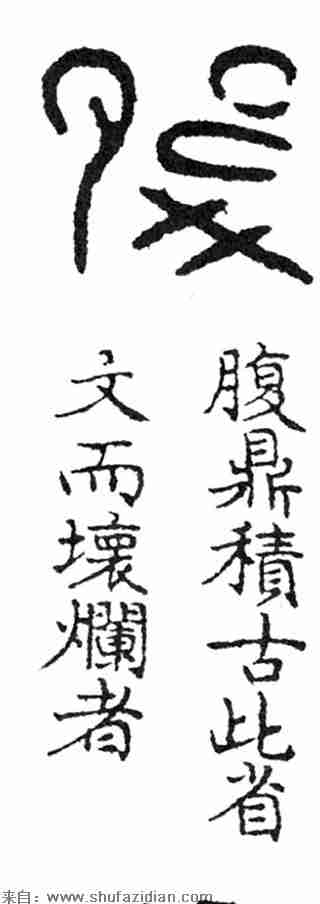 腹鼎積古此省
文而壞爛者
来自：www.shufazidian.com